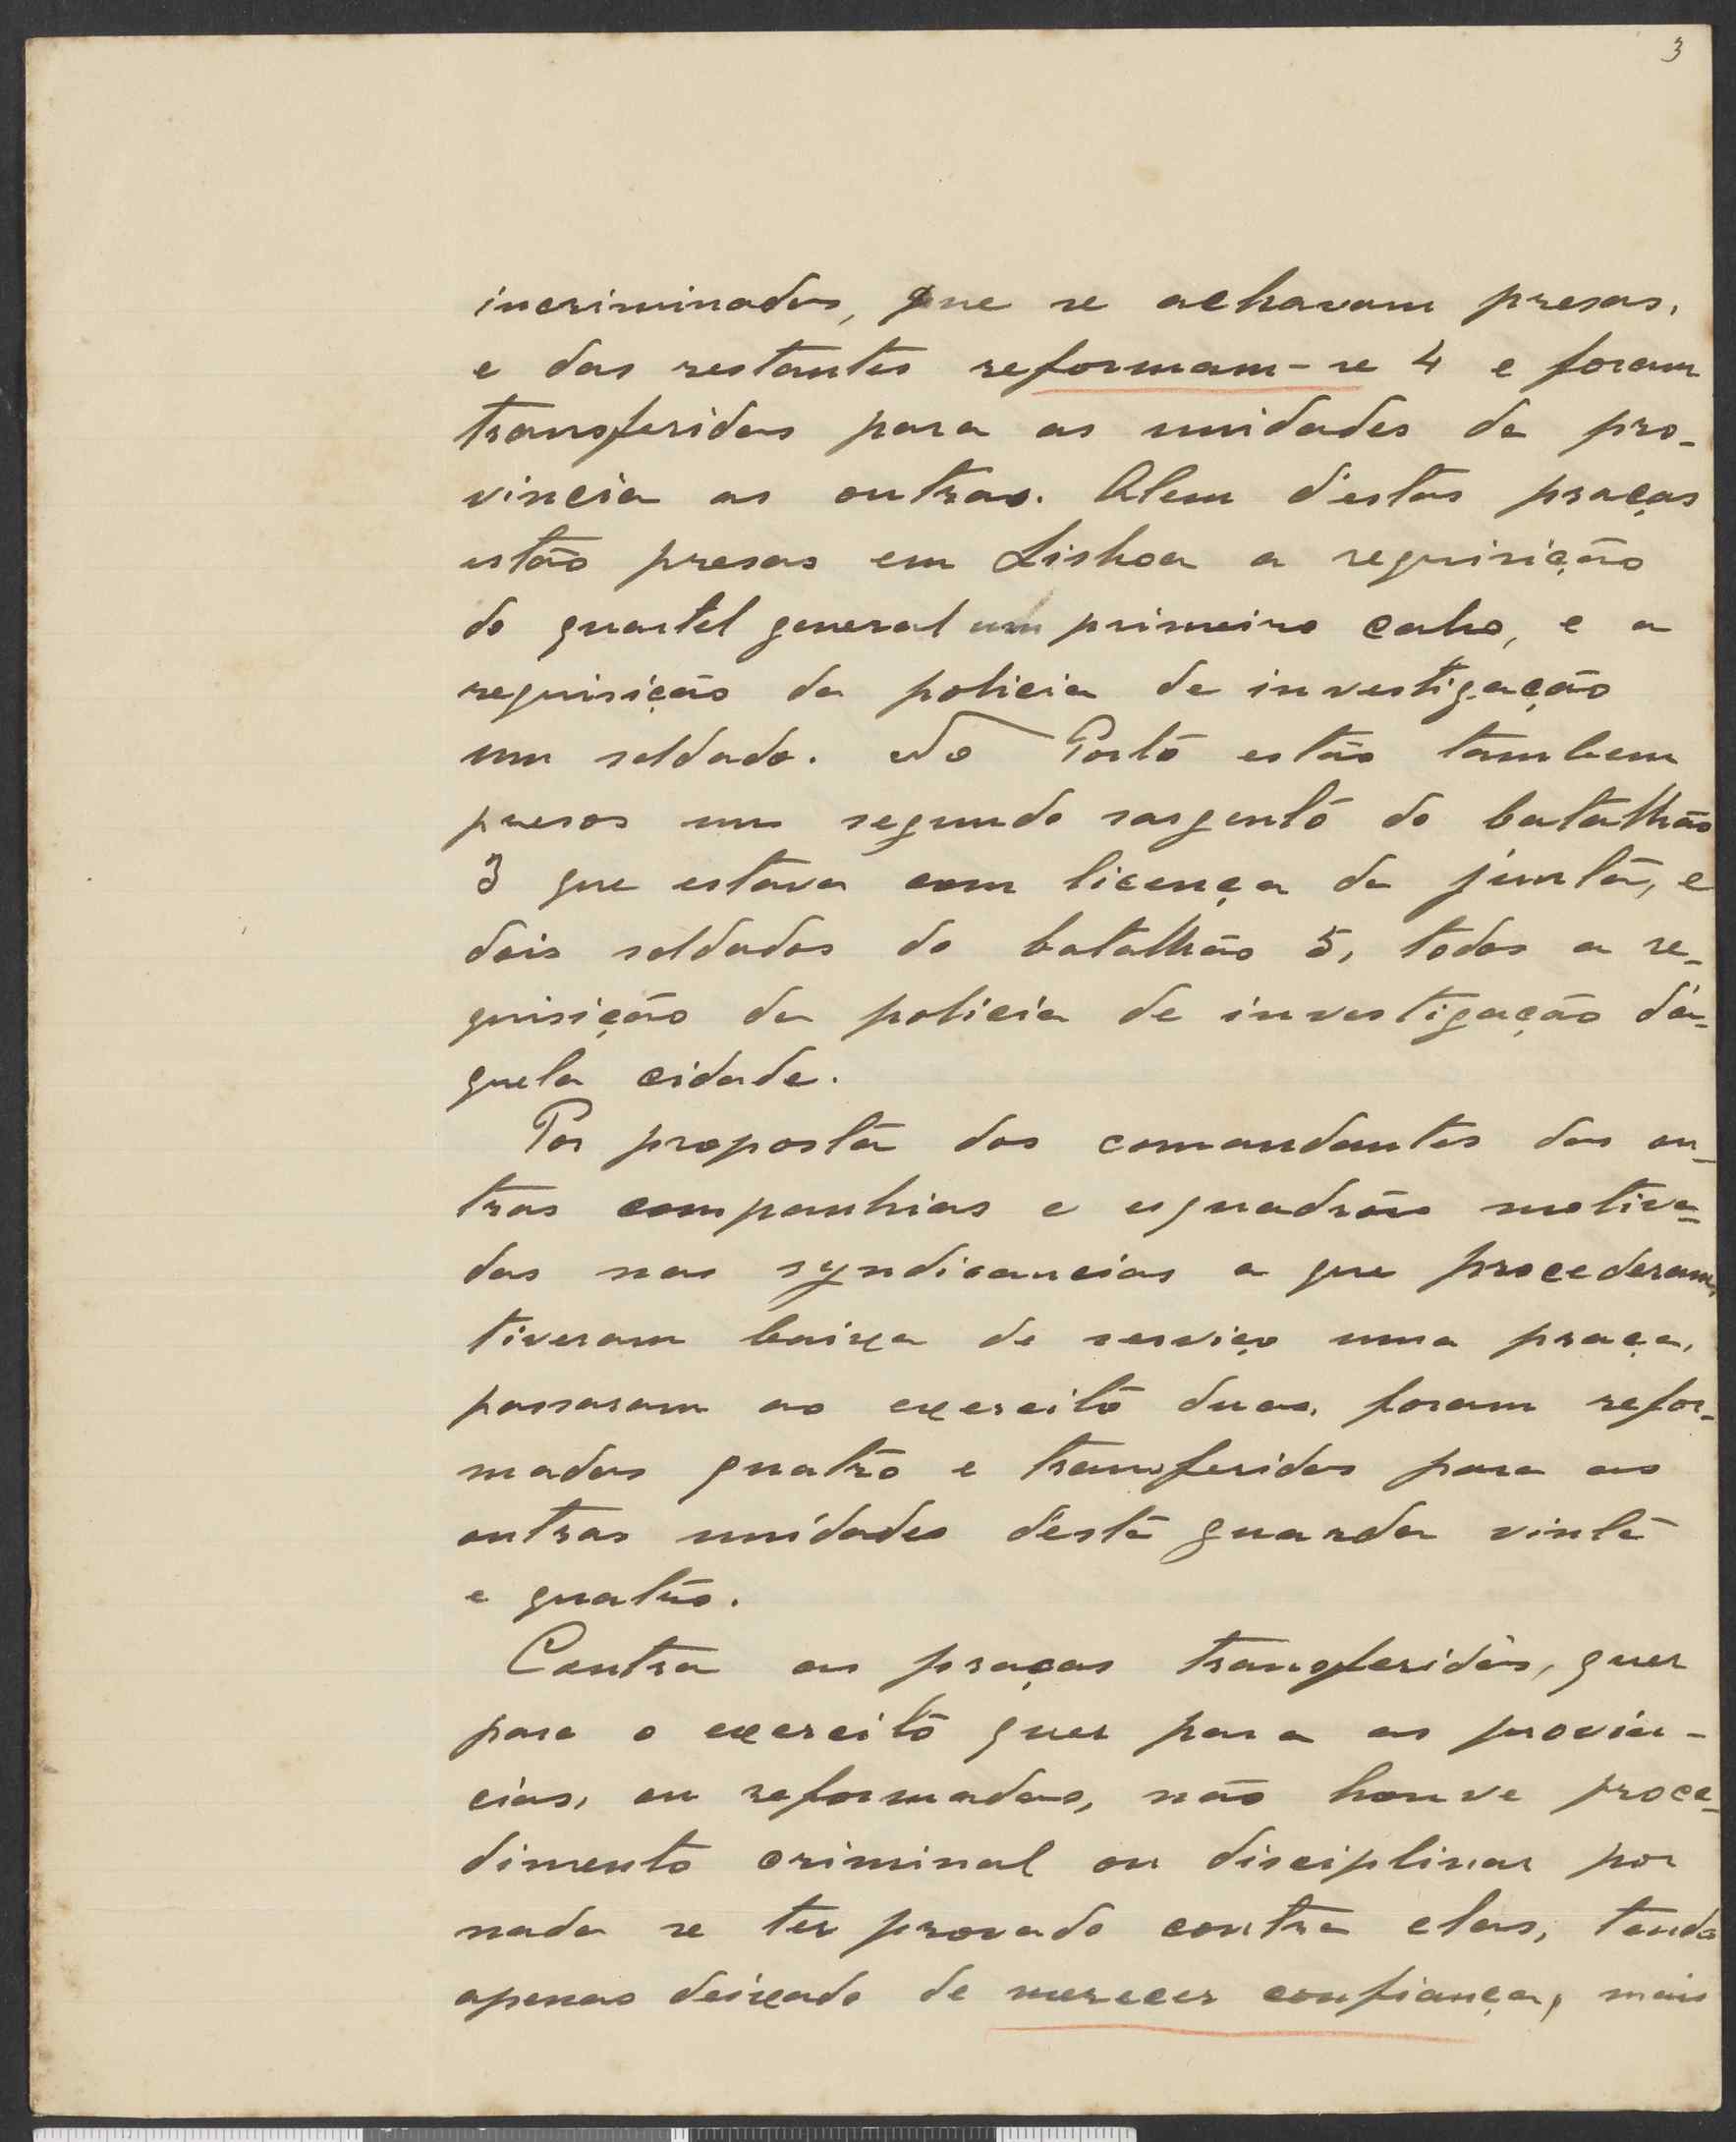 3
incriminadas, que se achavam presas,
e das restantes reformam-se 4 e foram
transferidas para as unidades da pro-
vincia as outras. Alem d'estas praças
estão presas em Lisboa a requisição
do quartel general um primeiro cabo, e a
requisição da policia de investigação
um soldado. No Porto estão tambem
presos um segundo sargento do batalhão
3 que estava com licença da junta, e
dois soldados do batalhão 5, todos a re-
quisição da policia de investigação d'a-
quela cidade.
Por proposta dos comandantes das ou-
tras companhias e esquadrão motiva-
das nas syndicancias a que procederam,
tiveram baixa de serviço uma praça,
passaram ao exercito duas, foram refor-
madas quatro e transferidas para as
outras unidades d'esta guarda vinte
e quatro.
Contra as praças transferidas, quer
para o exercito quer para as provin-
cias, ou reformadas, não houve proce-
dimento criminal ou disciplinar por
nada se ter provado contra elas, tendo
apenas deixado de merecer confiança, mais